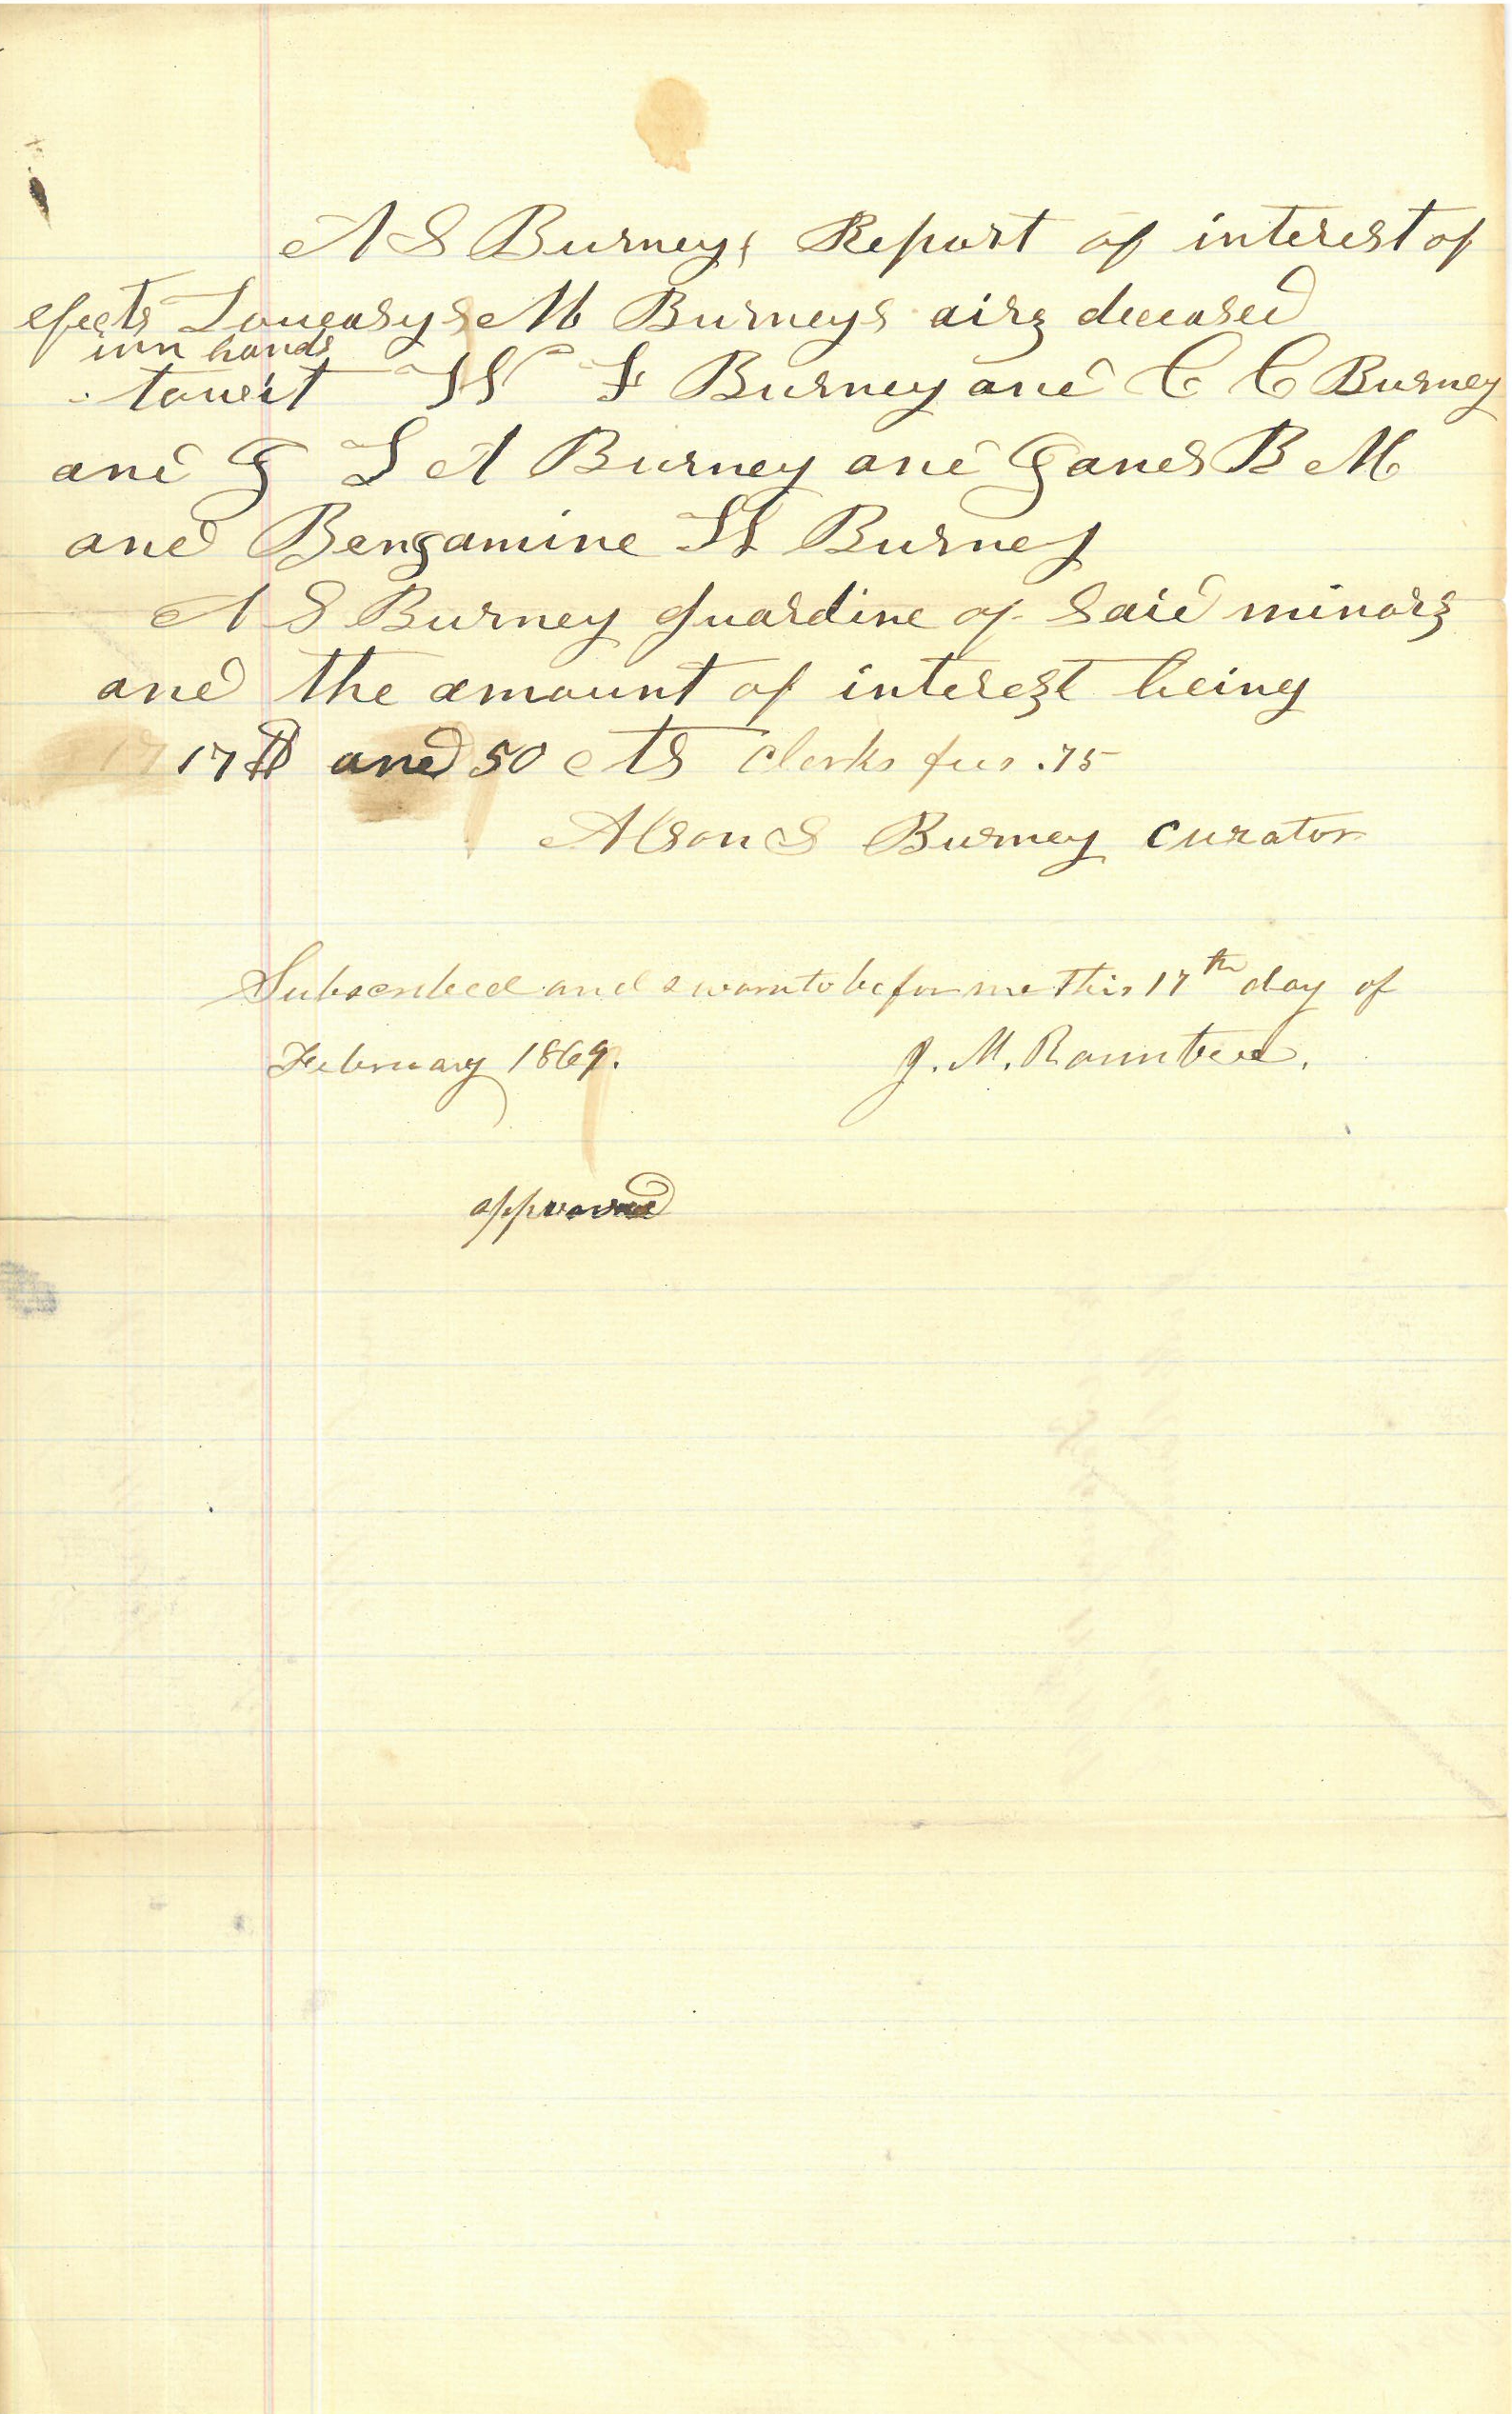 A S Burneys Report of interest of
efects M Burneys airs deceased
inn hands
towit W F Burney and C C Burney
and G L A Burney and Ganes B M
and Bengamine H Burney
A S Burney guardine of Said minors
and the amount of interest being
17 17$ and 50 cts Clerks fees .75
Alson S Burney curator
Subscribed and sworn to before me this 17th day of
February 1869. J. M. Rountree.
approved